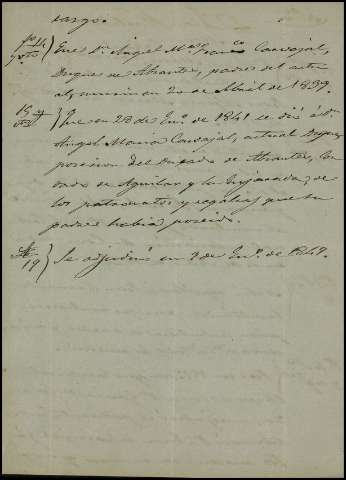 cargo.
Que Dn. Angel Ma. Carvajal,
Duque de Abrantes, padre del actu
al, murió en 20 de Abril de 1839.
Que en 28 de En.º de 1841 se dió á Dn.
Angel Maria Carvajal, actual Duque,
posesion del Ducado de Abrantes, Con
dado de Aguilar y la Enjarada, de
los patronatos y regalias que su
padre habia poseido.
19} Se adjudicó en 9 de En.º de 1849.